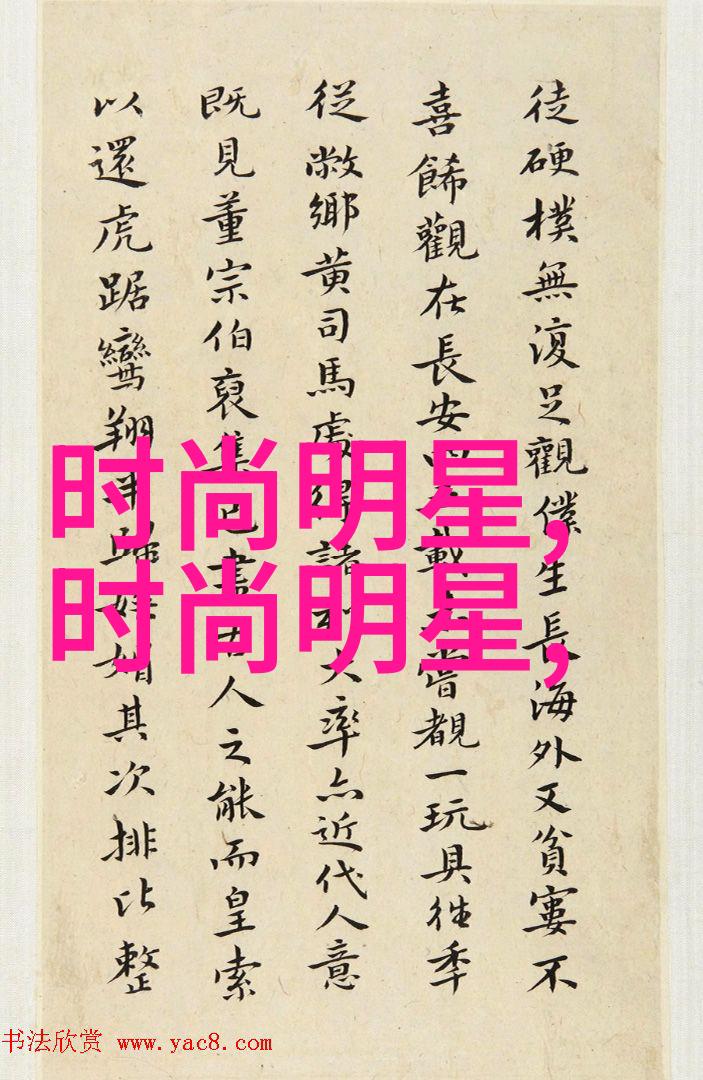 徒硬樸無復足觀僕生長海外又貧寠不
喜餙觀在長安載嘗覩一玩具往季
從敝鄉黄司馬處得諸大率亦近代人意
既見董宗伯裒集書人之能而皇索
以還虎踞鸞翔歸媚其次排比整
时尚明星,
时尚明星,
书法欣赏 www.yac8.com